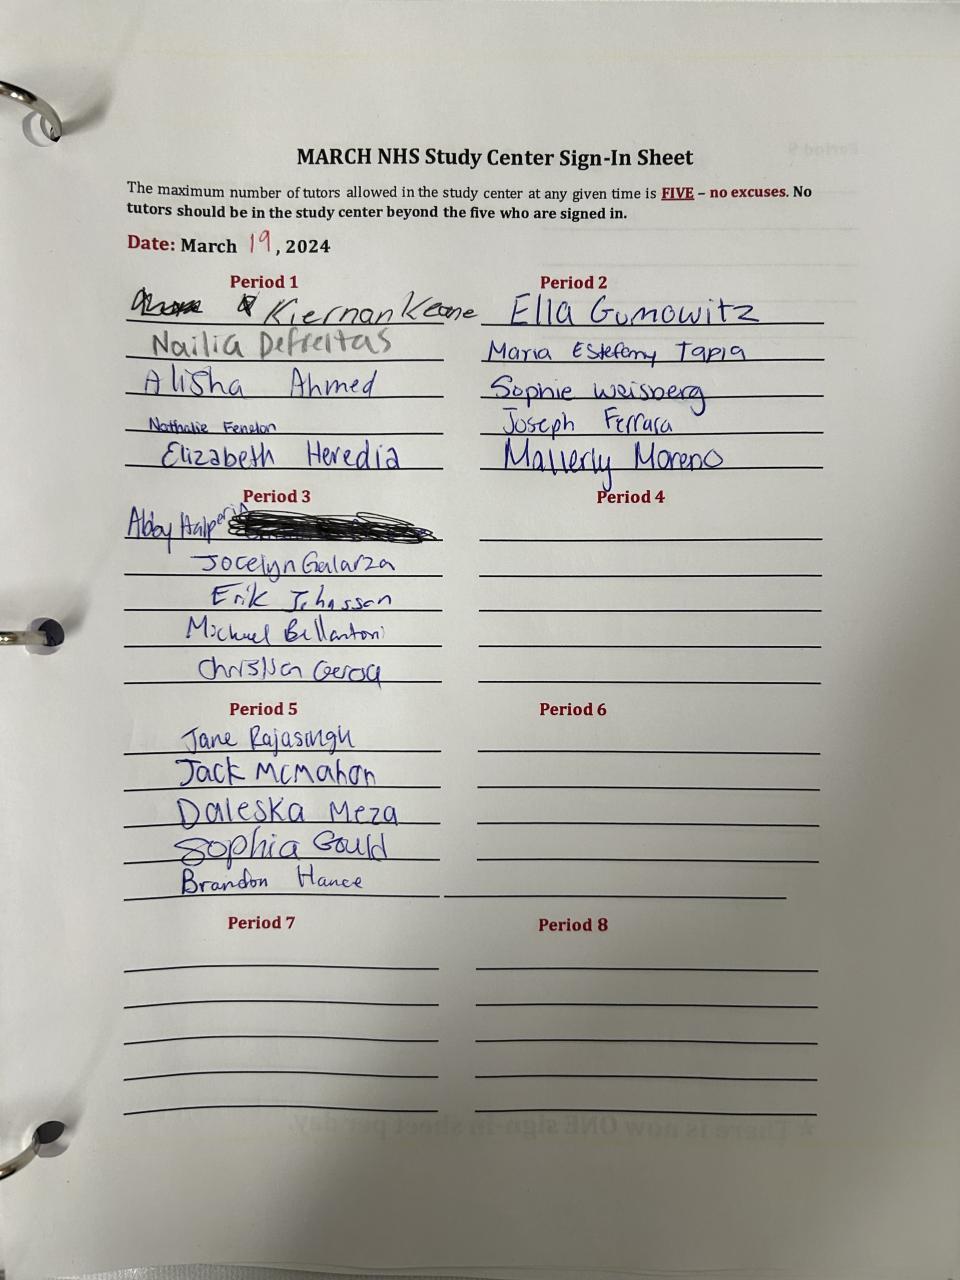 MARCH NHS Study Center Sign-In Sheet
The maximum number of tutors allowed in the study center at any given time is FIVE – no excuses. No
tutors should be in the study center beyond the five who are signed in.
Date: March 19, 2024
Period 1
Kiernan Keane
Nailia Defreitas
Alisha Ahmed
Nathalie Fenelon
Elizabeth Heredia
Period 2
Ella Gumowitz
Maria Estefany Tapia
Sophie Weisberg
Joseph Ferrara
Mallerly Moreno
Period 3
Abby Halperin
Jocelyn Galarza
Erik Johasson
Michael Bellantoni
Christian
Period 4
Period 5
Jane Rajasingh
Jack McMahon
Daleska Meza
Sophia Gould
Brandon Hance
Period 6
Period 7
Period 8